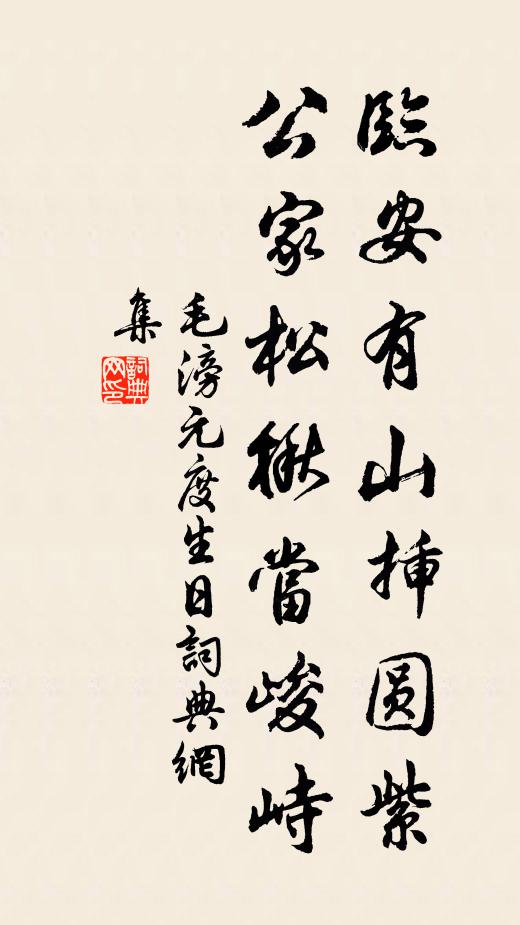 臨安有山挿圆紫
公家松楸當峻峙
毛滂元度生日詞典網
集
詞典网印